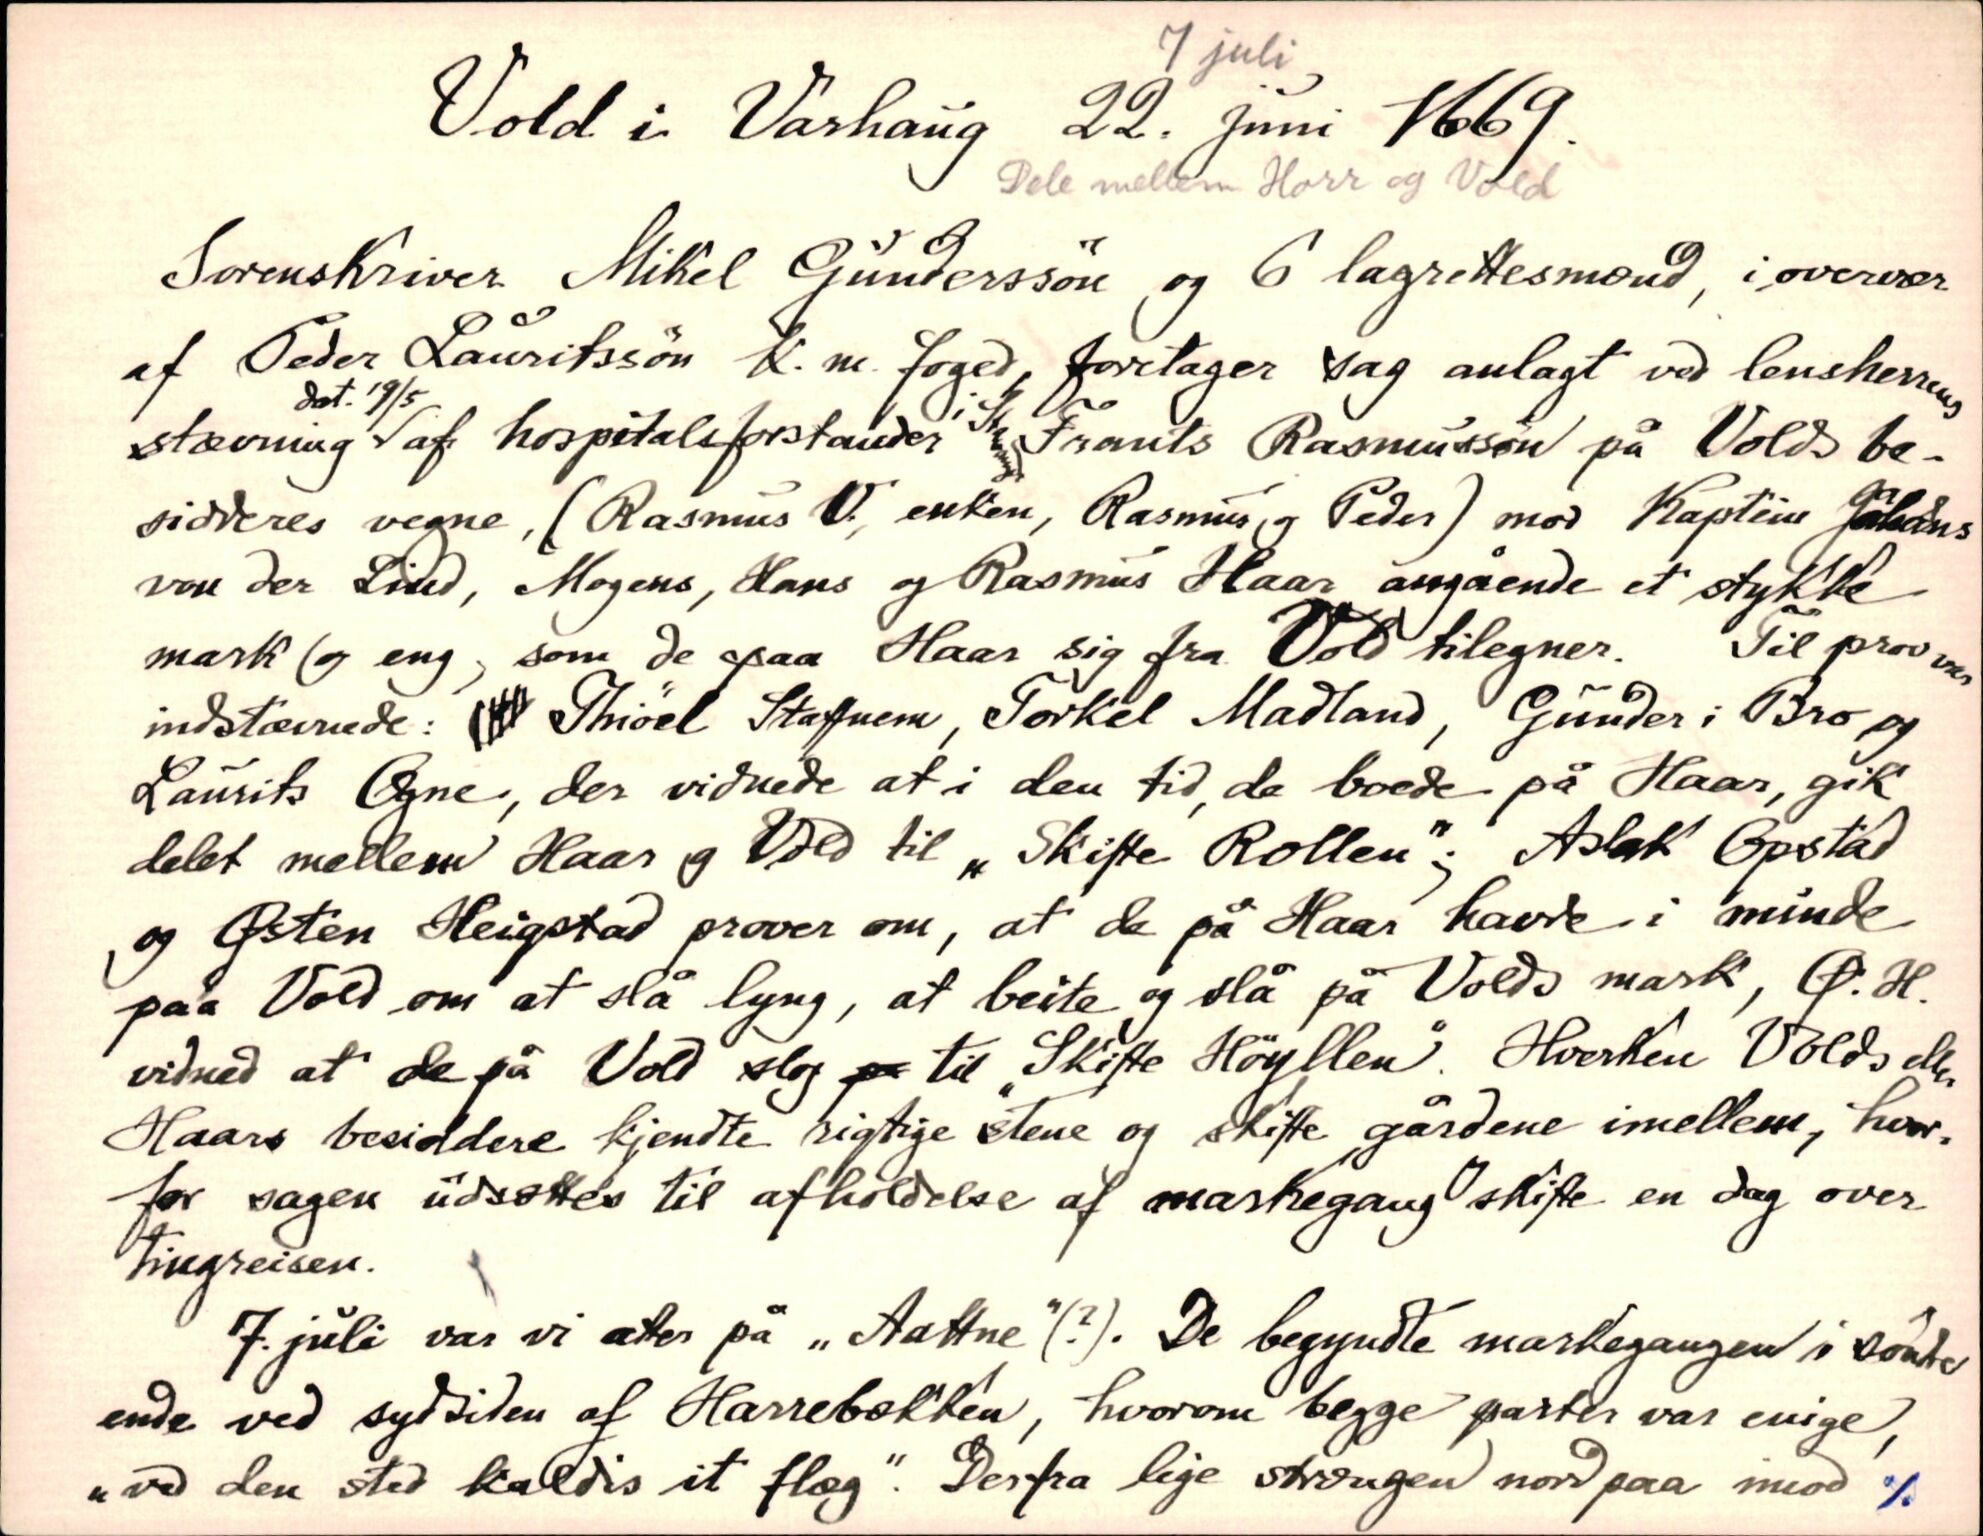 7 juli
Vold i Varhaug 22. juni 1669.
Dele mellem Horr og Vold
Sorenskriver Mikel Gunderssön og 6 lagrettesmænd, i overvær
af Peder Lauritssön K. m. foged, foretager sag anlagt ved lensherrens
dat. 19/5
stævning √ af hospitalsforstander i Frants Rasmussön på Volds be-
sidderes vegne, (Rasmus V., enken, Rasmus og Peder) mod Kaptein Johans
von der Lind, Mogens, Hans og Rasmus Haar angående et stykke
mark og eng, som de paa Haar sig fra Vold tilegner. Til prov var
indstævnede: Thiöel Stafnem, Torkel Madland, Gunder i Bro og
Laurits Ogne, der vidnede at i den tid, de boede på Haar, gik
delet mellem Haar og Vold til „Skifte Rollen"; Aslak Opstad
og Østen Heigstad prover om, at de på Haar havde i minde
paa Vold om at slå lyng, at beite og slå på Volds mark, Ø. H.
vidned at de på Vold slog til „Skifte Höyllen". Hverken Volds eller
Haars besiddere kjendte rigtige stene og skifte gårdene imellem, hvor-
for sagen udsættes til afholdelse af markegang og skifte en dag over
tingreisen.
7. juli var vi atter på „Aattne"(?). De begyndte markegangen i söndre
ende ved sydsiden af Harrebækken, hvorom begge parter var enige,
„ved den sted kaldis it flæg". Derfra lige strængen nord paa imod %